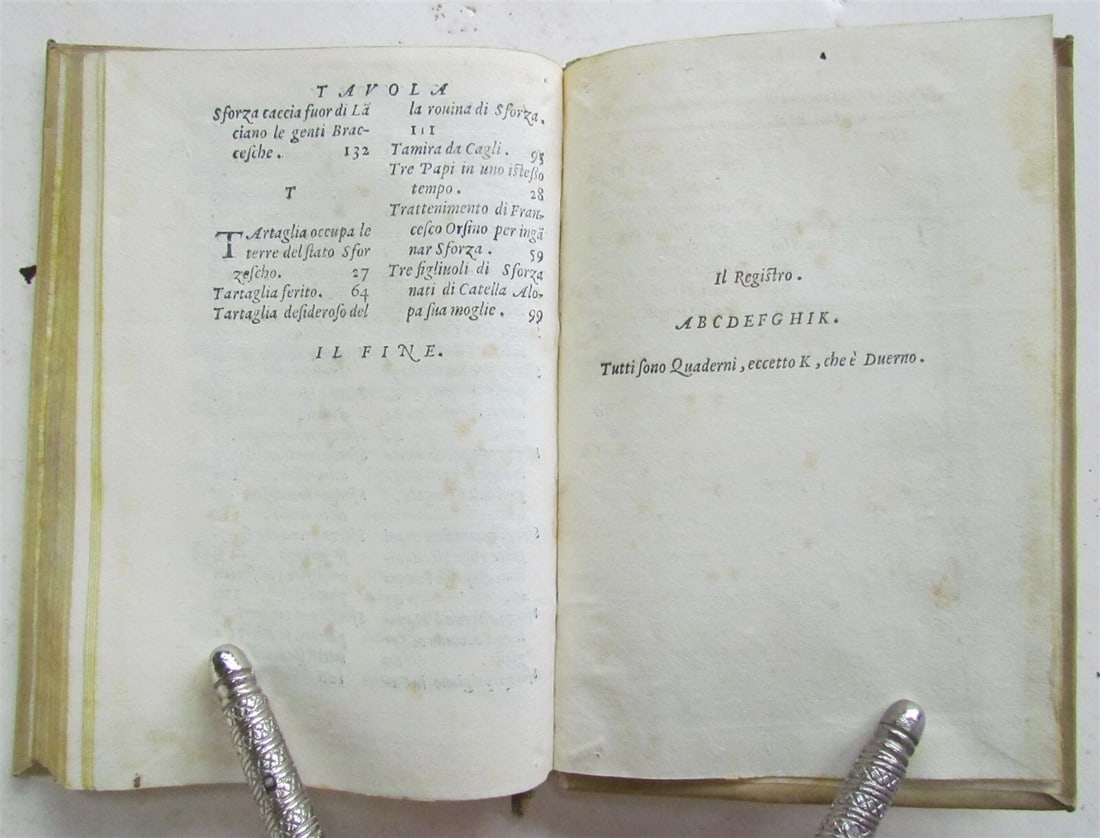 TAVOLA
Sforza caccia fuor di Lã
ciano le genti Brac-
cesche. 132
T
TArtaglia occupa le
terre del stato Sfor
zescho. 27
Tartaglia ferito. 64
Tartaglia desideroso del
la rouina di Sforza.
111
Tamira da Cagli. 95
Tre Papi in uno istesso
tempo. 28
Trattenimento di Fran-
cesco Orsino per ingã
nar Sforza. 59
Tre figliuoli di Sforza
nati di Catella Alo-
pa sua moglie. 99
IL FINE.
Il Registro.
ABCDEFGHIK.
Tutti sono Quaderni, eccetto K, che è Duerno.